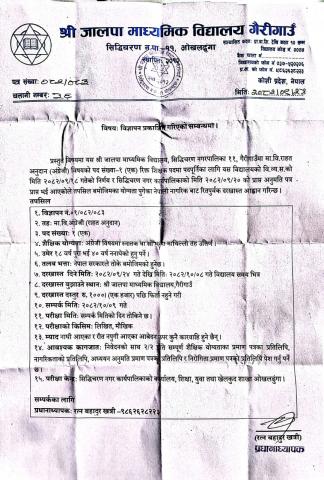 श्री जालपा माध्यमिक विद्यालय गैरीगाउँ
सिद्धिचरण न.पा.-११, ओखलढुंगा
पत्र संख्याः २०८२/०८३
चलानी नम्बरः
कोशी प्रदेश, नेपाल
मितिः २०८२/०९/२३
विषयः विज्ञापन प्रकाशित गरिएको सम्बन्धमा।
प्रस्तुत विषयमा यस श्री जालपा माध्यमिक विद्यालय, सिद्धिचरण नगरपालिका ११, गैरीगाउँमा मा.वि.राहत
अनुदान (अंग्रेजी) विषयको पद संख्या-१ (एक) रिक्त शिक्षक पदमा पदपूर्तिका लागि यस विद्यालयको वि.व्य.स.को
मिति २०८२/०९/१८ गतेको निर्णय र सिद्धिचरण नगर कार्यपालिकाको मिति २०८२/०९/२० को प्राप्त अनुमति पत्र
प्राप्त भई आएकोले तपसिल बमोजिमका योग्यता पुगेका नेपाली नागरिक बाट रितपूर्वक दरखास्त आह्वान गरिन्छ।
तपसिल
१. विज्ञापन नं.०१/२०८२/०८३
२. तहः मा.वि.अंग्रेजी (राहत अनुदान)
३. पद संख्याः १ (एक)
४. शैक्षिक योग्यताः अंग्रेजी विषयमा स्नातक वा सो भन्दा माथिल्लो तह उत्तिर्ण।
५. उमेर १८ वर्ष पुरा भई ४० वर्ष ननाघेको हुनु पर्ने।
६. तलब भत्ताः नेपाल सरकारले तोके बमोजिमको हुनेछ।
७. दरखास्त दिने मितिः २०८२/०९/२४ गते देखि मितिः २०८२/१०/०८ गते विद्यालय समय भित्र
८. दरखास्त बुझाउने स्थानः श्री जालपा माध्यमिक विद्यालय,गैरीगाउँ
९. दरखास्त दस्तुर रु. १०००।(एक हजार) पछि फिर्ता नहुने गरी
१०. सम्पर्क मितिः २०८२/१०/०९ गते
११. परीक्षा मितिः सम्पर्क मितिको दिन तोकिने छ।
१२. परीक्षाको किसिमः लिखित, मौखिक
१३. म्याद नाघी आएका र रीत नपुगी आएका आवेदन उपर कुनै कारवाहि हुने छैन।
१४. आवश्यक कागजातः निवेदनको साथ २/२ प्रति सम्पूर्ण शैक्षिक योग्यताका प्रमाण पत्रका प्रतिलिपि,
नागरिकताको प्रतिलिपि, अध्ययन अनुमति प्रमाण पत्रको प्रतिलिपि र निरोगिता प्रमाण पत्रको प्रतिलिपि पेश गर्नु पर्ने
छ।
१५. परीक्षा केन्द्रः सिद्धिचरण नगर कार्यपालिकाको कार्यालय, शिक्षा, युवा तथा खेलकुद शाखा ओखलढुंगा।
सम्पर्कका लागि
प्रधानाध्यापकः रत्न बहादुर खत्री -९८६२६२८२२३
(रत्न बहादुर खत्री)
प्रधानाध्यापक